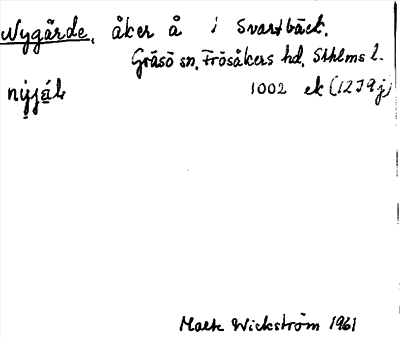 Nygärde, åker å i Svartbäck.
Gräsö sn, Frösåkers hd, Sthlms l.
1002 ek (12 I 9 j)
Mats Wickström 1961